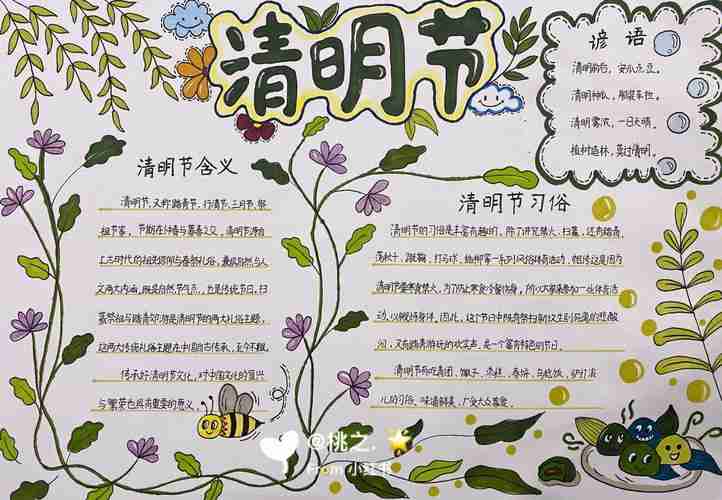 清明节
谚语
清明前后，安瓜点豆。
清明种瓜，船装车拉。
清明雾浓，一日天晴。
植树造林，莫过清明。
清明节含义
清明节，又称踏青节、行清节、三月节、祭
祖节等，节期在仲春与暮春之交。清明节源自
上古时代的祖先信仰与春祭礼俗，兼具自然与人
文两大内涵，既是自然节气点，也是传统节日，扫
墓祭祖与踏青郊游是清明节的两大礼俗主题，
这两大传统礼俗主题在中国自古传承，至今不辍。
传承好清明节文化，对中国文化的复兴
与繁荣也具有重要的意义。
清明节习俗
清明节的习俗是丰富有趣的，除了讲究禁火、扫墓，还有踏青、
荡秋千、蹴鞠、打马球、插柳等一系列风俗体育活动，相传这是因为
清明节要寒食禁火，为了防止寒食冷餐伤身，所以大家来参加一些体育活
动，以锻炼身体。因此，这个节日中既有祭扫新坟生别死离的悲酸
泪，又有踏青游玩的欢笑声，是一个富有特色的节日。
清明节有吃青团、馓子、
的习俗，味道鲜美，广受大众喜爱。
@桃之.
From 小红书